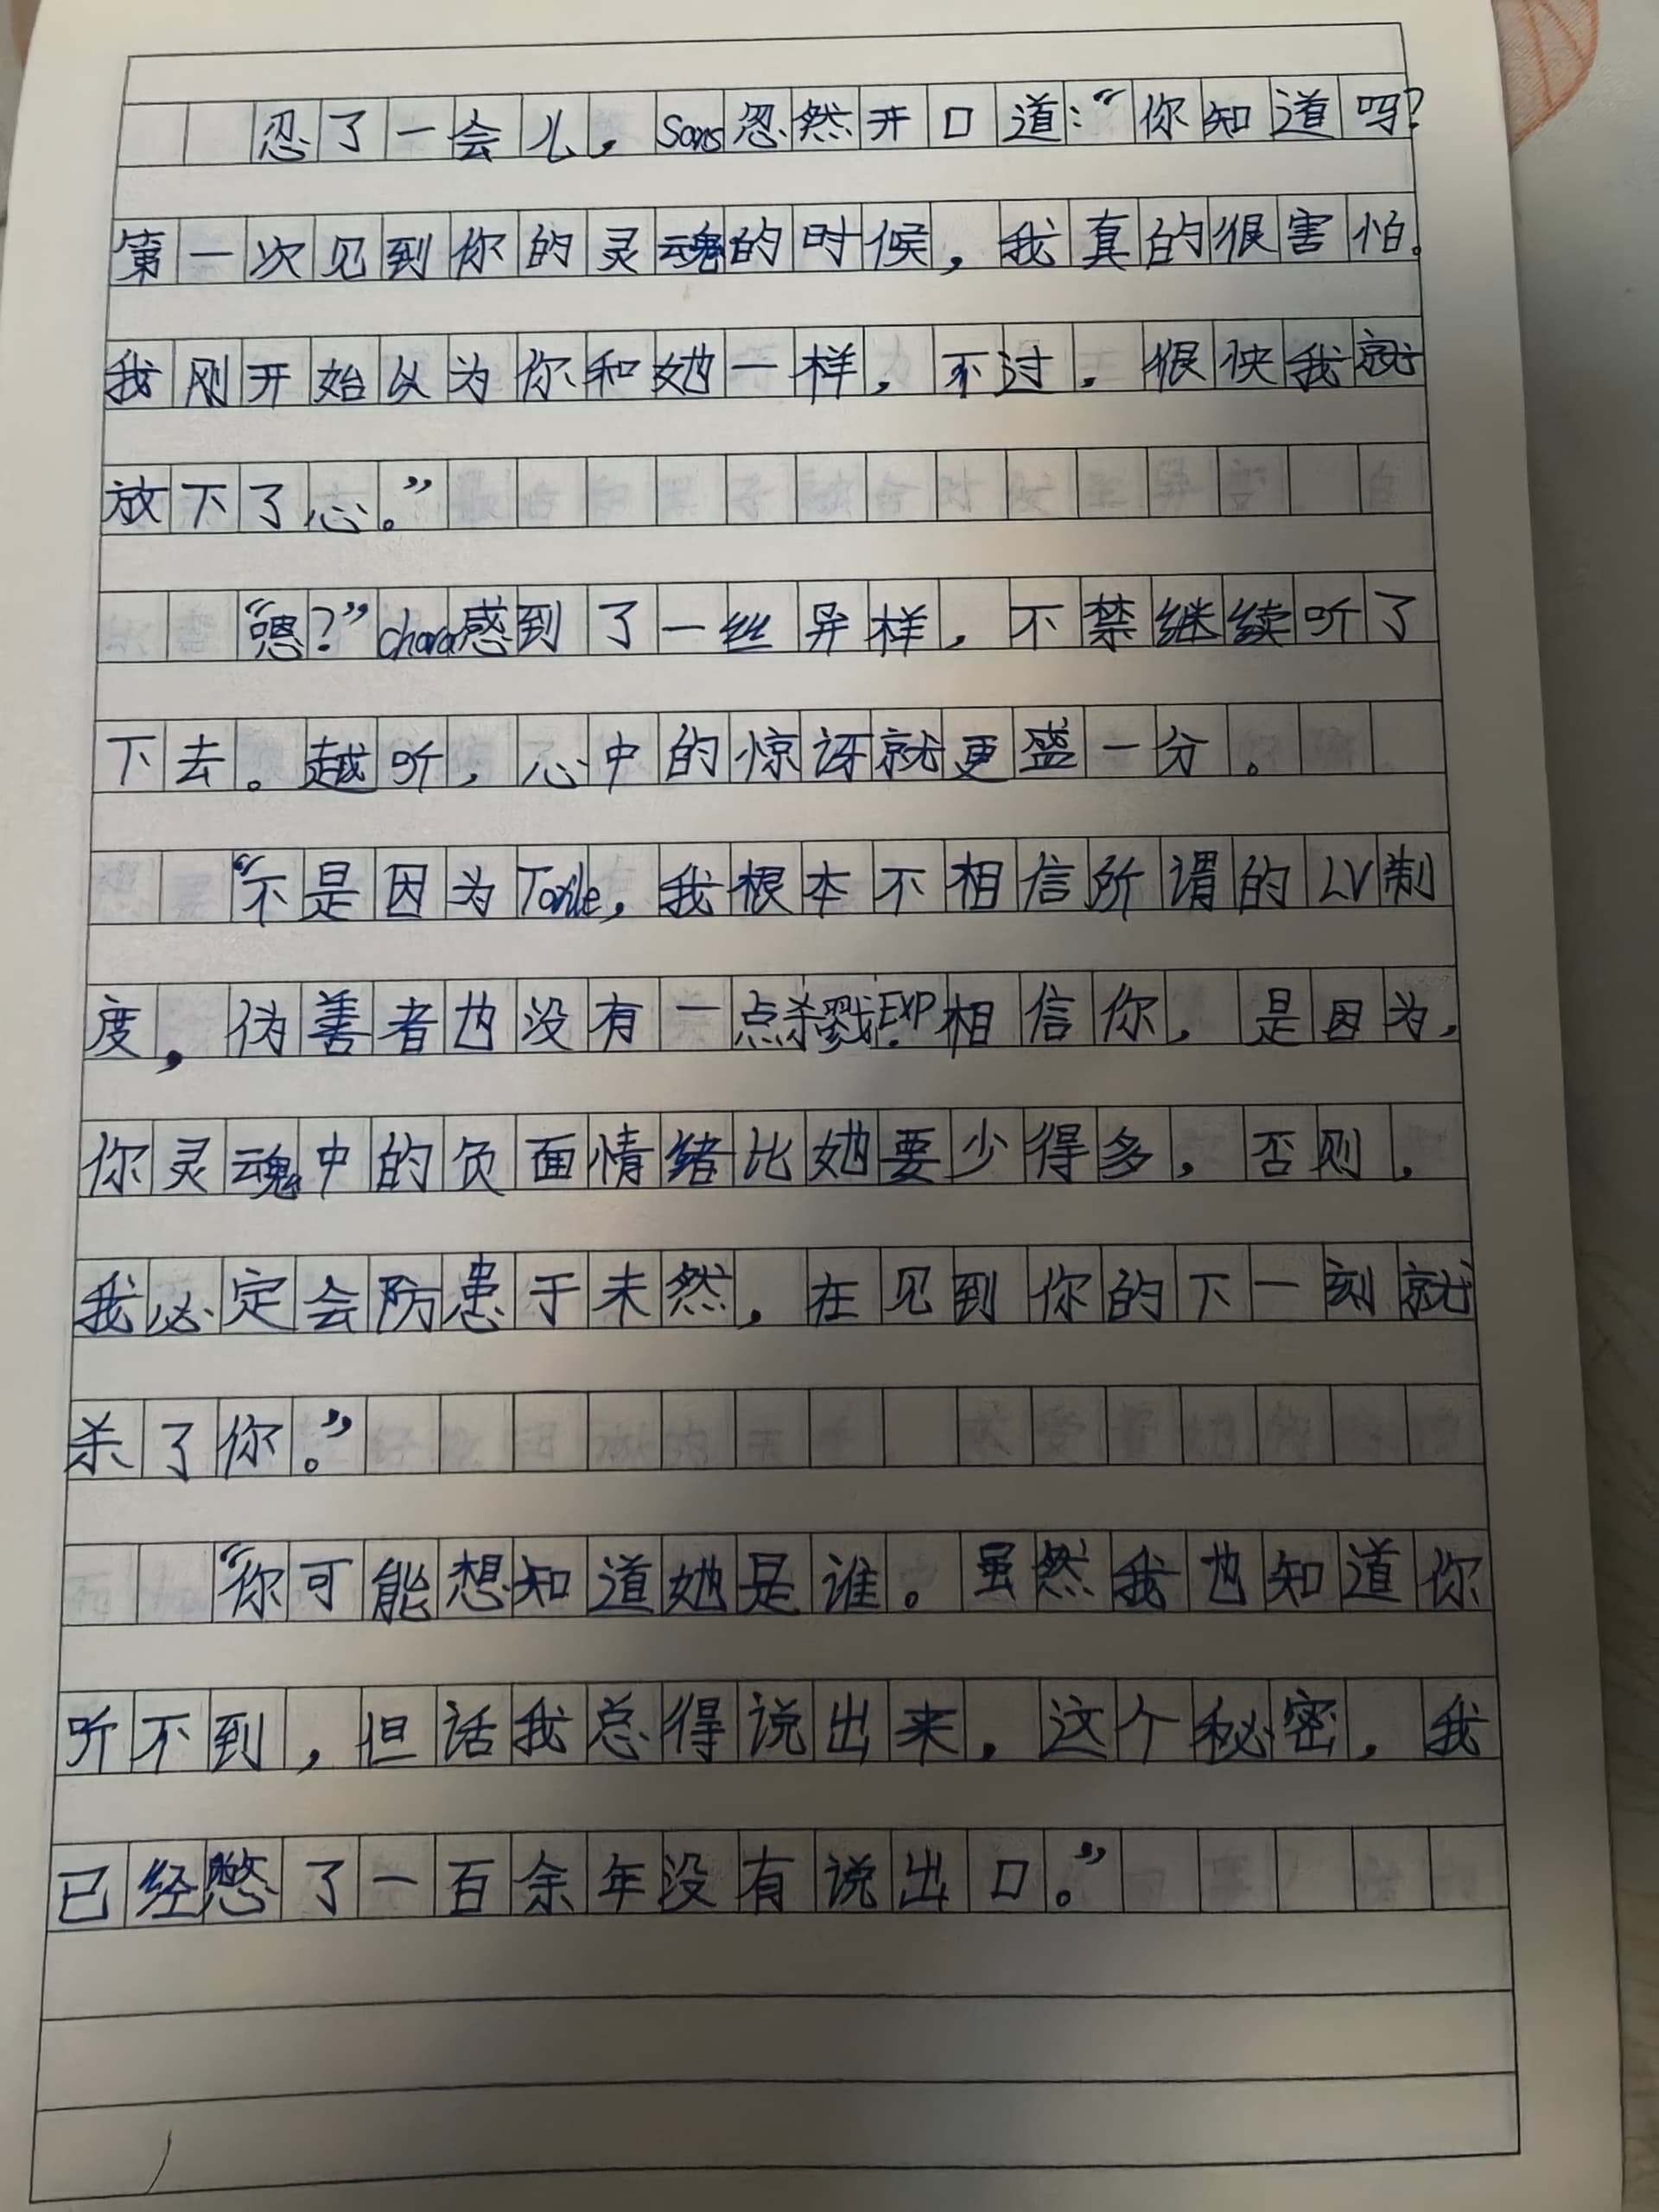 忍了一会儿，Sans忽然开口道：“你知道吗？
第一次见到你的灵魂的时候，我真的很害怕。
我刚开始以为你和她一样，不过，很快我就
放下了心。”
“嗯？”chara感到了一丝异样，不禁继续听了
下去。越听，心中的惊讶就更盛一分。
“不是因为Torile，我根本不相信所谓的LV制
度，伪善者也没有一点杀戮EXP.相信你，是因为，
你灵魂中的负面情绪比她要少得多，否则，
我必定会防患于未然，在见到你的下一刻就
杀了你。”
“你可能想知道她是谁。虽然我也知道你
听不到，但话我总得说出来，这个秘密，我
已经憋了一百余年没有说出口。”